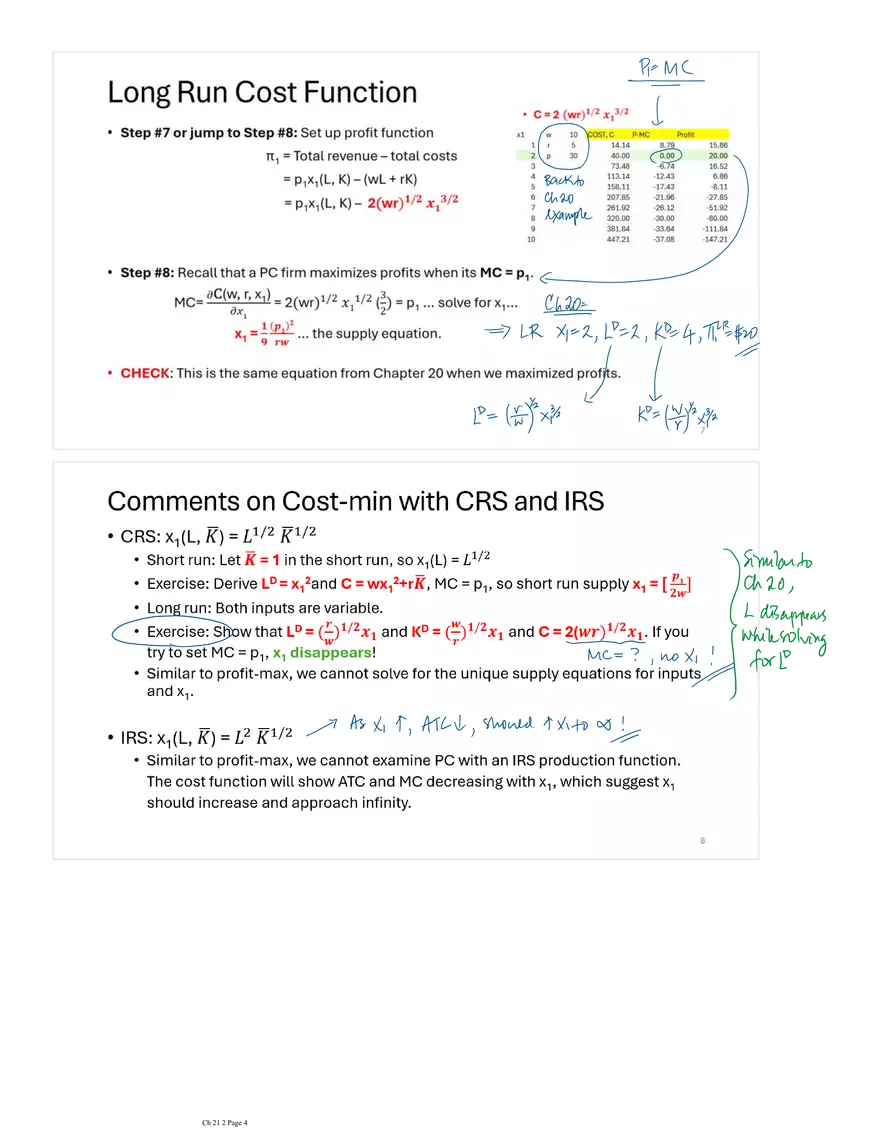 P₁= MC
Long Run Cost Function
• Step #7 or jump to Step #8: Set up profit function
π₁ = Total revenue – total costs
= p₁x₁(L, K) – (wL + rK)
= p₁x₁(L, K) – 2(wr)^1/2 x₁^3/2
• C = 2 (wr)^1/2 x₁^3/2
x1 w 10 COST, C P-MC Profit
1 r 5 14.14 8.79 15.86
2 p 30 40.00 0.00 20.00
3 73.48 -6.74 16.52
4 113.14 -12.43 6.86
5 158.11 -17.43 -8.11
6 207.85 -21.96 -27.85
7 261.92 -26.12 -51.92
8 320.00 -30.00 -80.00
9 381.84 -33.64 -111.84
10 447.21 -37.08 -147.21
Back to
Ch 20
example
• Step #8: Recall that a PC firm maximizes profits when its MC = p₁.
MC= ∂C(w, r, x₁)/∂x₁ = 2(wr)^1/2 x₁^1/2 (3/2) = p₁ ... solve for x₁...
Ch 20=
x₁ = 1/9 (p₁)²/rw ... the supply equation.
⇒ LR X₁=2, Lᴰ=2, Kᴰ=4, π^LR=$20
• CHECK: This is the same equation from Chapter 20 when we maximized profits.
Lᴰ= (r/w)^1/2 x₁^3/2
Kᴰ= (w/r)^1/2 x₁^3/2
7
Comments on Cost-min with CRS and IRS
• CRS: x₁(L, K̅) = L^1/2 K̅^1/2
• Short run: Let K̅ = 1 in the short run, so x₁(L) = L^1/2
• Exercise: Derive Lᴰ = x₁² and C = wx₁²+rK̅, MC = p₁, so short run supply x₁ = [p₁/2w]
• Long run: Both inputs are variable.
• Exercise: Show that Lᴰ = (r/w)^1/2 x₁ and Kᴰ = (w/r)^1/2 x₁ and C = 2(wr)^1/2 x₁. If you
try to set MC = p₁, x₁ disappears!
MC= ? , no X₁ !
• Similar to profit-max, we cannot solve for the unique supply equations for inputs
and x₁.
Similar to
Ch 20,
L disappears
while solving
for Lᴰ
→ As X₁ ↑, ATC↓, should ↑ X₁ to ∞ !
• IRS: x₁(L, K̅) = L² K̅^1/2
• Similar to profit-max, we cannot examine PC with an IRS production function.
The cost function will show ATC and MC decreasing with x₁, which suggest x₁
should increase and approach infinity.
8
Ch 21 2 Page 4